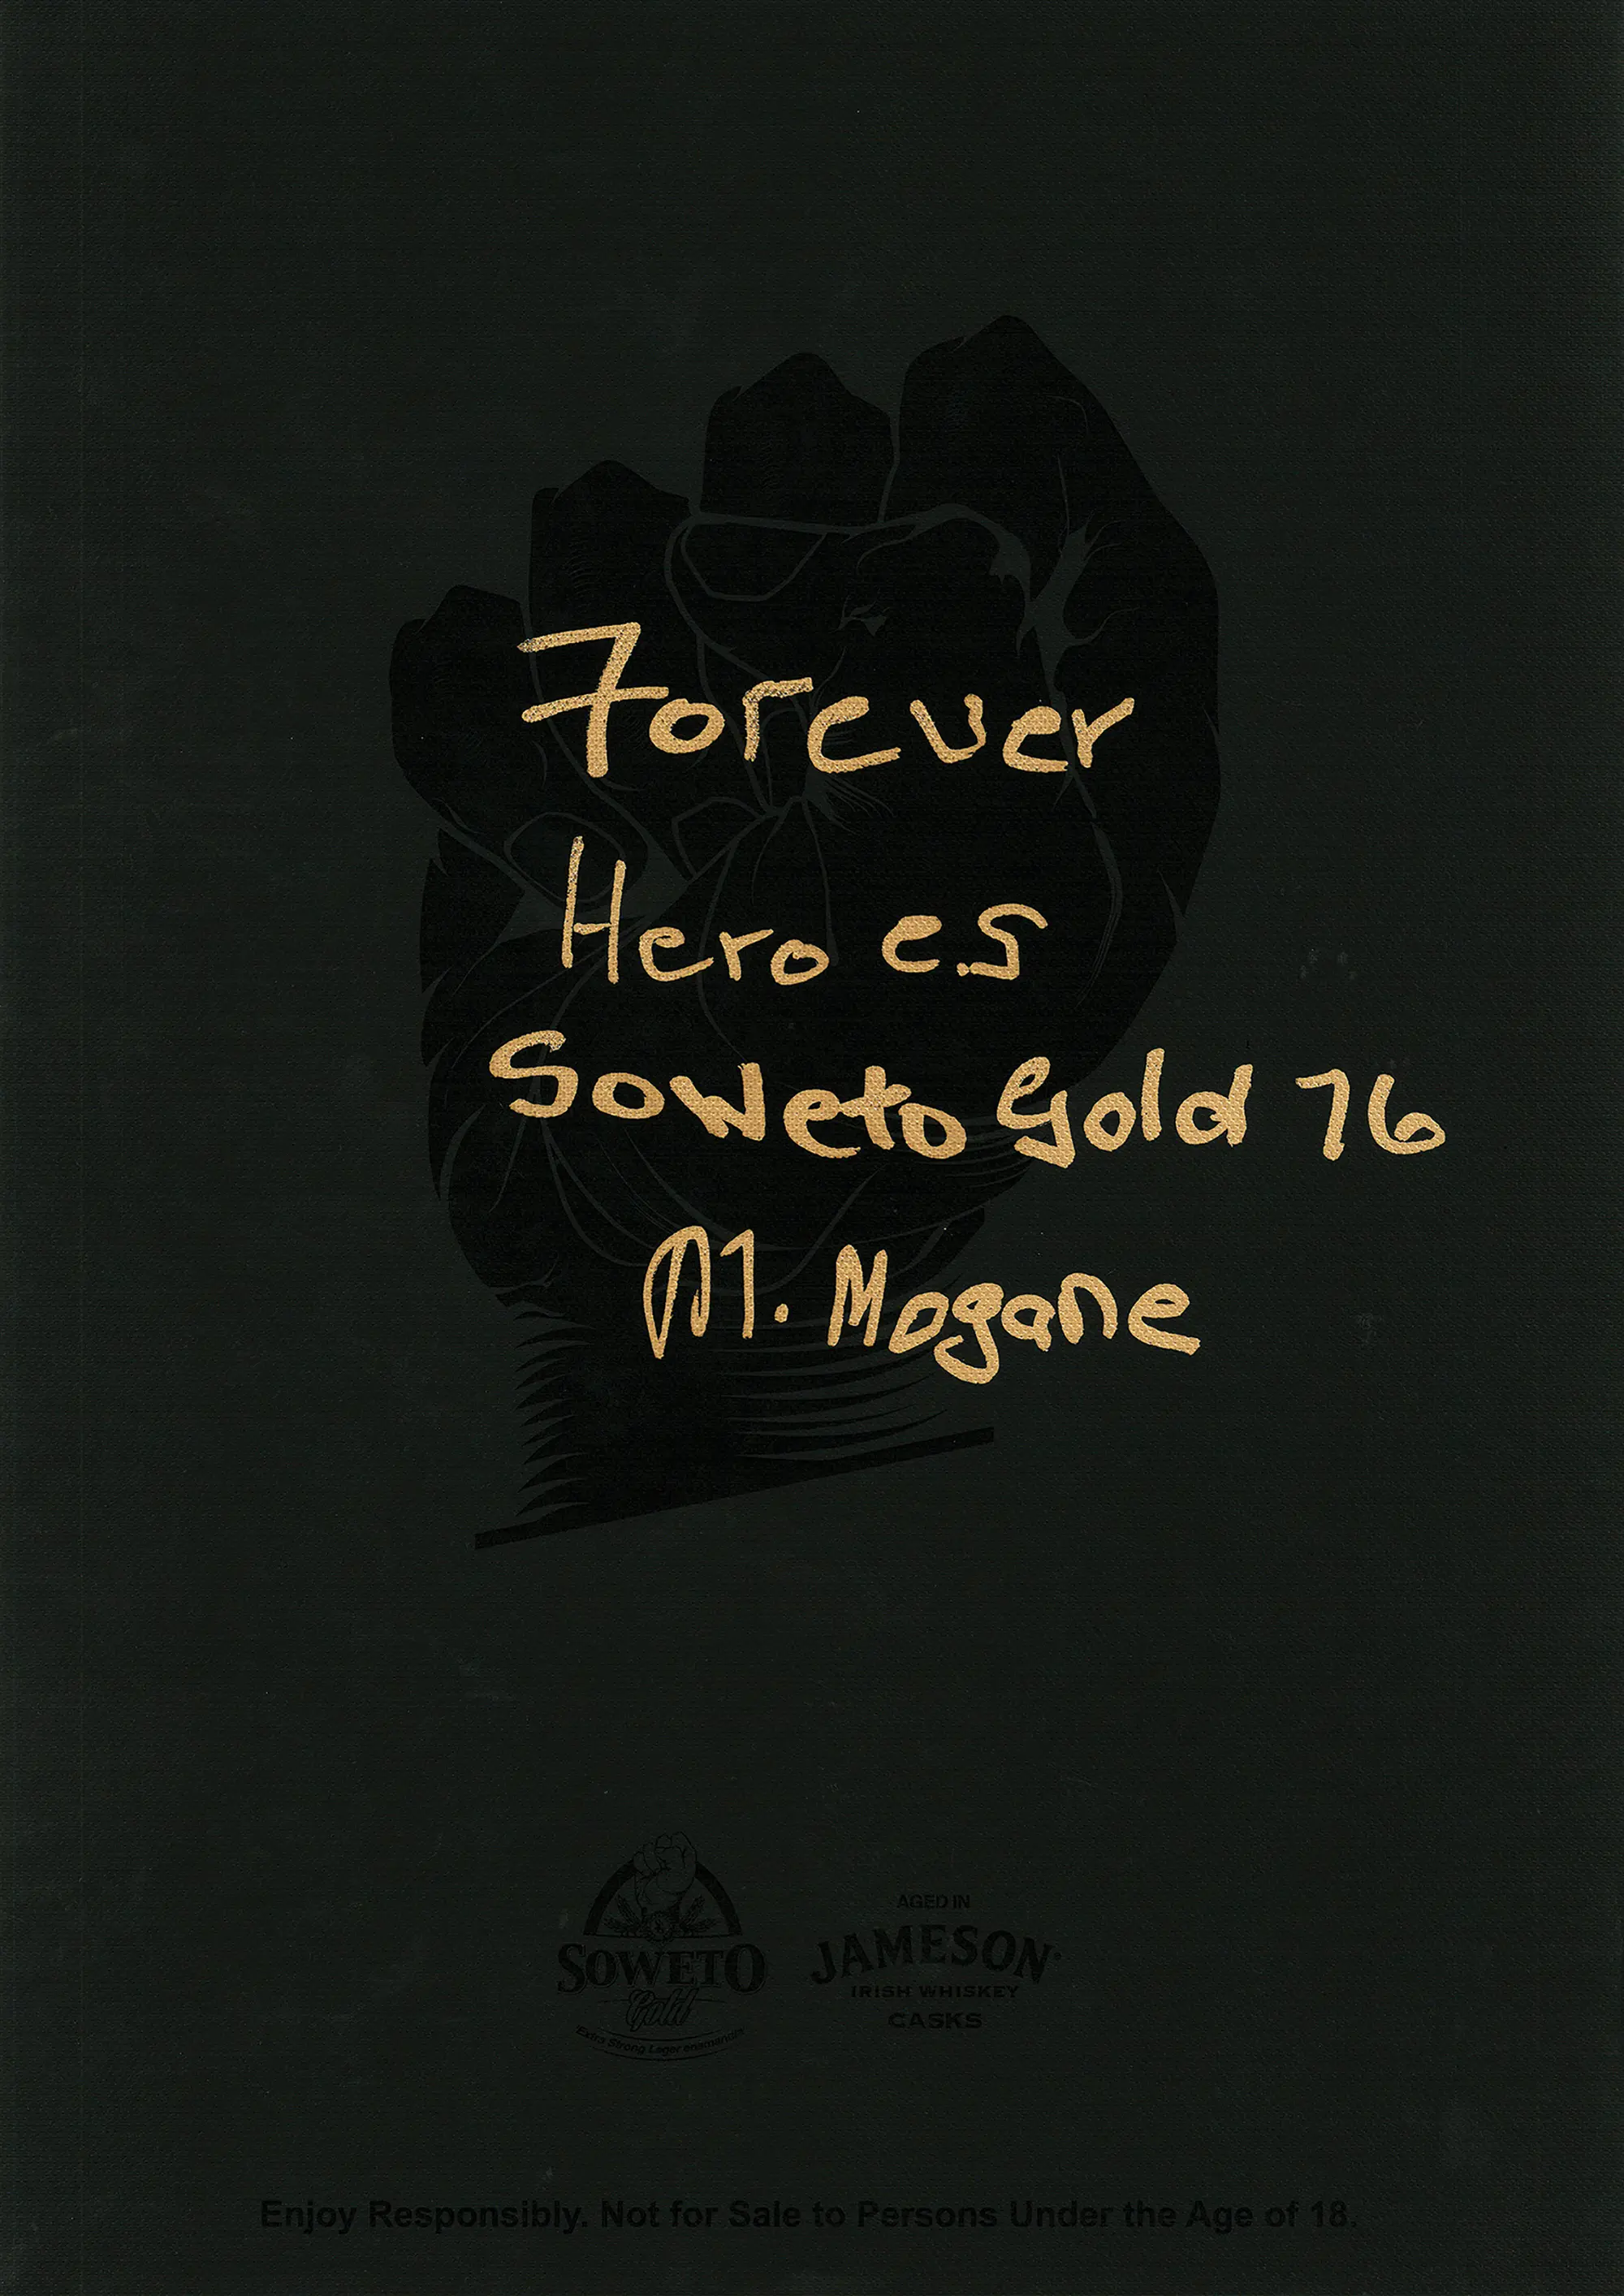 Forever
Heroes
Soweto Gold 76
M. Mogane
SOWETO
Gold
Extra Strong Lager
AGED IN
JAMESON
IRISH WHISKEY
CASKS
Enjoy Responsibly. Not for Sale to Persons Under the Age of 18.